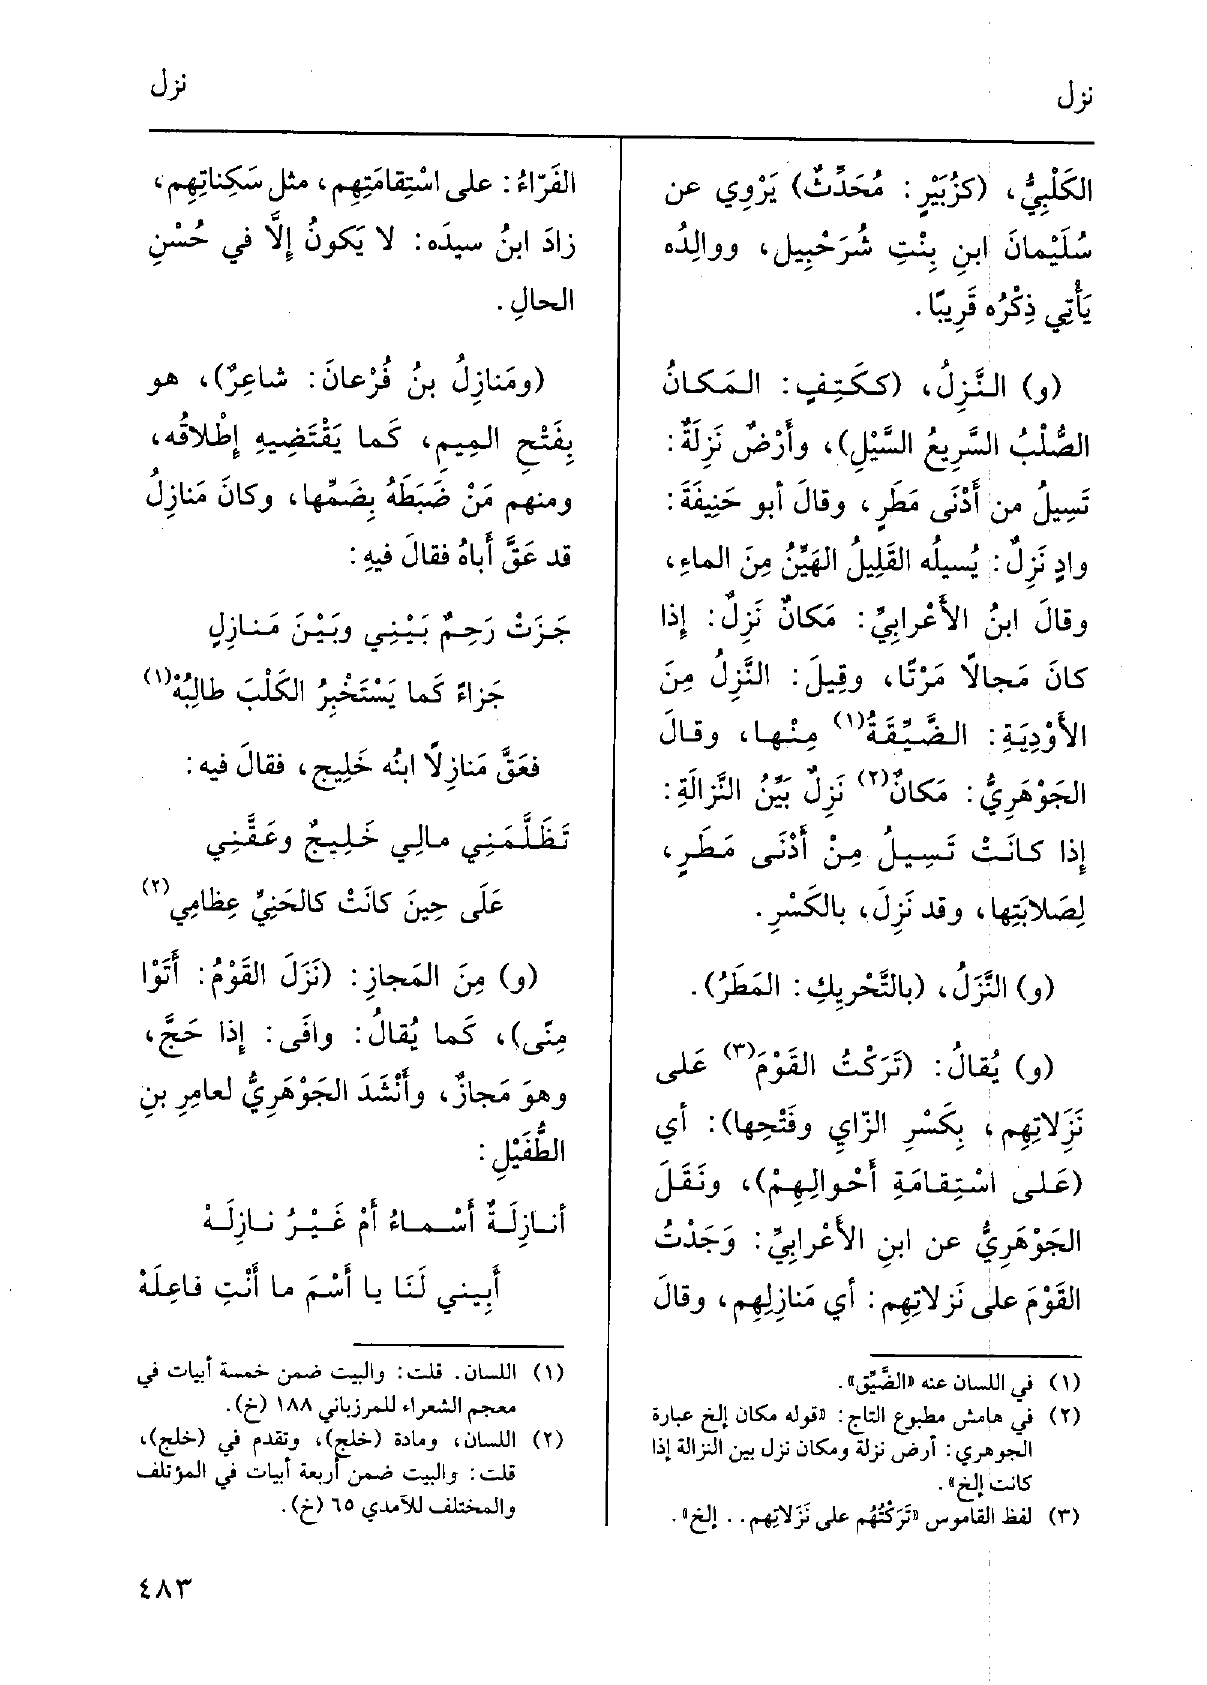 نزل
نزل
الكَلْبِيُّ، (كزُبَيْرٍ: مُحَدِّثٌ) يَرْوِي عن
سُلَيْمانَ ابنِ بِنْتِ شُرَحْبِيل، ووالِدُه
يَأْتِي ذِكْرُه قَرِيبًا.
(و) النَّزِلُ، (ككَتِفٍ: المَكانُ
الصُّلْبُ السَّرِيعُ السَّيْلِ)، وأَرْضٌ نَزِلَةٌ:
تَسِيلُ من أَدْنَى مَطَرٍ، وقالَ أبو حَنِيفَةَ:
وادٍ نَزِلٌ: يُسيلُه القَلِيلُ الهَيِّنُ مِنَ الماءِ،
وقالَ ابنُ الأَعْرابِيِّ: مَكانٌ نَزِلٌ: إذا
كانَ مَجالاً مَرْتًا، وقِيلَ: النَّزِلُ مِنَ
الأَوْدِيَةِ: الضَّيِّقَةُ(١) مِنْها، وقالَ
الجَوْهَرِيُّ: مَكانٌ(٢) نَزِلٌ بَيِّنُ النَّزالَةِ:
إذا كانَتْ تَسِيلُ مِنْ أَدْنَى مَطَرٍ،
لِصَلابَتِها، وقد نَزِلَ، بالكَسْرِ.
(و) النَّزَلُ، (بالتَّحْرِيكِ: المَطَرُ).
(و) يُقالُ: (تَرَكْتُ القَوْمَ(٣) عَلى
نَزِلَاتِهِم، بِكَسْرِ الزّايِ وفَتْحِها): أي
(عَلى اسْتِقامَةِ أَحْوالِهِمْ)، ونَقَلَ
الجَوْهَرِيُّ عن ابنِ الأَعْرابِيِّ: وَجَدْتُ
القَوْمَ على نَزلاتِهِم: أي مَنازِلِهِم، وقالَ
(١) في اللسان عنه «الضَّيِّق».
(٢) في هامش مطبوع التاج: «قوله مكان إلخ عبارة
الجوهري: أرض نزلة ومكان نزل بين النزالة إذا
كانت إلخ».
(٣) لفظ القاموس «تَرَكْتُهُم على نَزَلاتِهِم.. إلخ».
الفَرّاءُ: على اسْتِقامَتِهِم، مثل سَكِناتِهِم،
زادَ ابنُ سيدَه: لا يَكونُ إلَّا في حُسْنِ
الحالِ.
(ومَنازِلُ بنُ فُرْعانَ: شاعِرٌ)، هو
بِفَتْحِ المِيمِ، كَما يَقْتَضِيهِ إطْلاقُه،
ومنهم مَنْ ضَبَطَهُ بِضَمِّها، وكانَ مَنازِلُ
قد عَقَّ أَباهُ فقالَ فيهِ:
جَزَتْ رَحِمٌ بَيْنِي وبَيْنَ مَنازِلٍ
جَزاءً كَما يَسْتَخْبِرُ الكَلْبَ طالِبُهْ(١)
فعَقَّ مَنازِلًا ابنُه خَلِيج، فقالَ فيه:
تَظَلَّمَنِي مالِي خَلِيجٌ وعَقَّنِي
عَلَى حِينَ كانَتْ كالحَنِيِّ عِظامِي(٢)
(و) مِنَ المَجازِ: (نَزَلَ القَوْمُ: أَتَوْا
مِنًى)، كَما يُقالُ: وافَى: إذا حَجَّ،
وهوَ مَجازٌ، وأَنْشَدَ الجَوْهَرِيُّ لعامِرِ بنِ
الطُّفَيْلِ:
أنازِلَةٌ أَسْماءُ أمْ غَيْرُ نازِلَهْ
أَبِيني لَنَا يا أَسْمَ ما أَنْتِ فاعِلَهْ
(١) اللسان. قلت: والبيت ضمن خمسة أبيات في
معجم الشعراء للمرزباني ١٨٨ (خ).
(٢) اللسان، ومادة (خلج)، وتقدم في (خلج)،
قلت: والبيت ضمن أربعة أبيات في المؤتلف
والمختلف للآمدي ٦٥ (خ).
٤٨٣